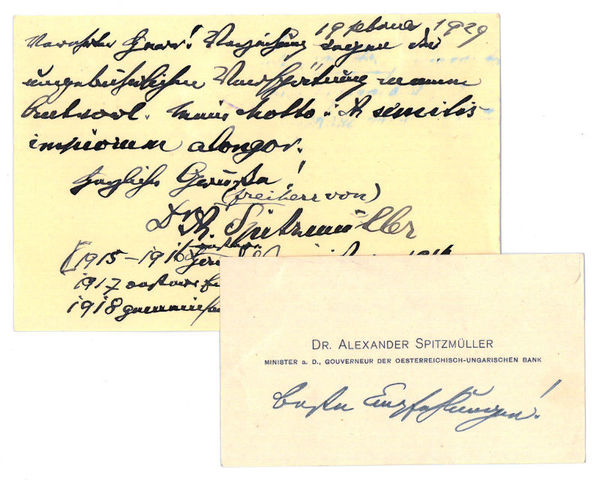 19 Februar 1929
Verehrter Herr! Verzeihung wegen der
ungebührlichen Verspätung meiner
Antwort. Mein Motto: A semitis
impiorum alongor.
Herzliche Grüße!
(freiherr von)
Dr A. Spitzmüller
(1915–1916
1917
1918 gemeinsamer
DR. ALEXANDER SPITZMÜLLER
MINISTER a. D., GOUVERNEUR DER OESTERREICHISCH-UNGARISCHEN BANK
Beste Empfehlungen!